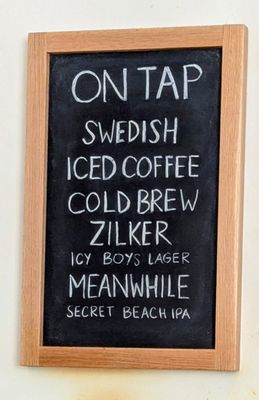 ON TAP
SWEDISH
ICED COFFEE
COLD BREW
ZILKER
ICY BOYS LAGER
MEANWHILE
SECRET BEACH IPA